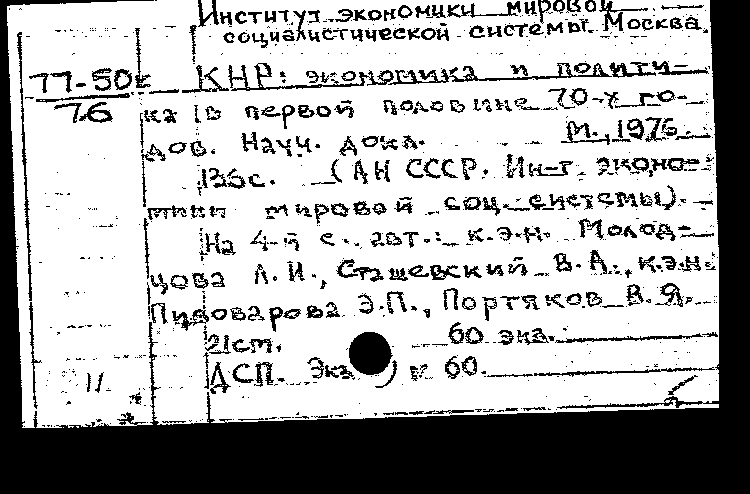 Институт экономики мировой
социалистической системы. Москва.
77-50к
76
КНР: экономика и полити-
ка (в первой половине 70-х го-
дов. Науч. докл. М., 1976.
136с. (АН СССР. Ин-т эконо-
мики мировой соц. системы).
На 4-й с. авт.: к.э.н. Молод-
цова Л.И., Сташевский В.А., к.э.н.
Пивоварова Э.П., Портяков В.Я.
21см. 60 экз.
ДСП. Экз ) № 60.
11